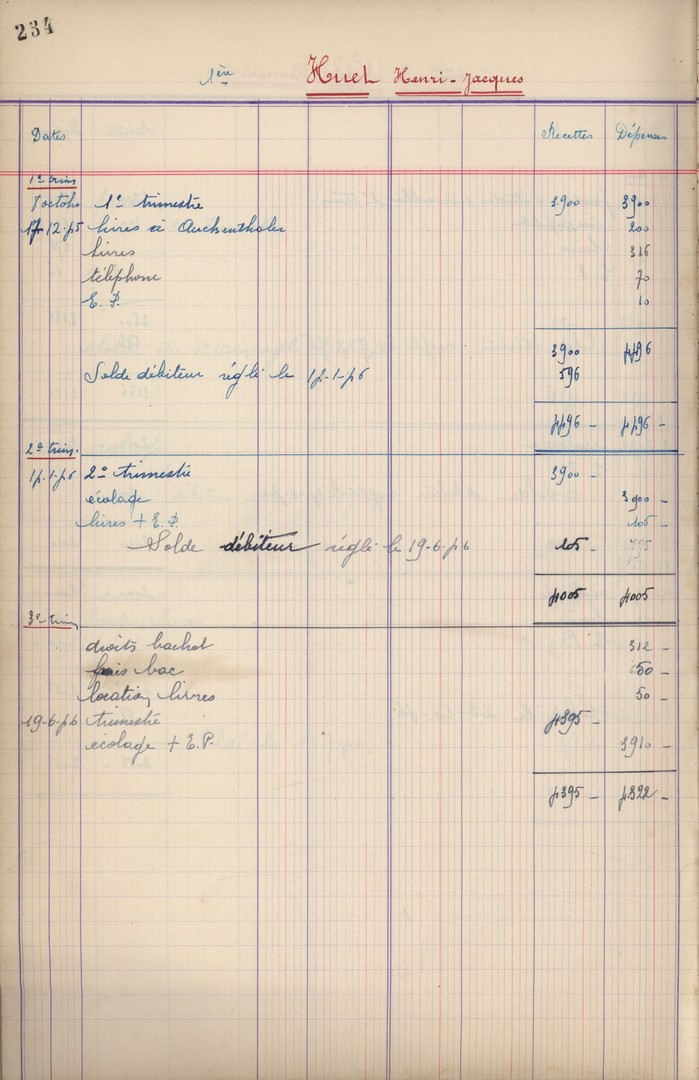 234
1ère Huet Henri-Jacques
Dates Recettes Dépenses
1er trim
7 octobre 1er trimestre 3900 3900
17.12.45 livres à Auckenthaler 200
livres 316
téléphone 70
E.P. 10
3900 4496
Solde débiteur réglé le 14-1-46 596
4496 - 4496 -
2e trim.
14.1.46 2e trimestre 3900 -
écolage 3900 -
livres + E.P. 105 -
Solde débiteur réglé le 19-6-46 105 -
4005 4005
3e trim
droits bachot 312 -
frais bac 50 -
location livres 50 -
19-6-46 trimestre 4395 -
écolage + E.P. 3910 -
4395 - 4322 -